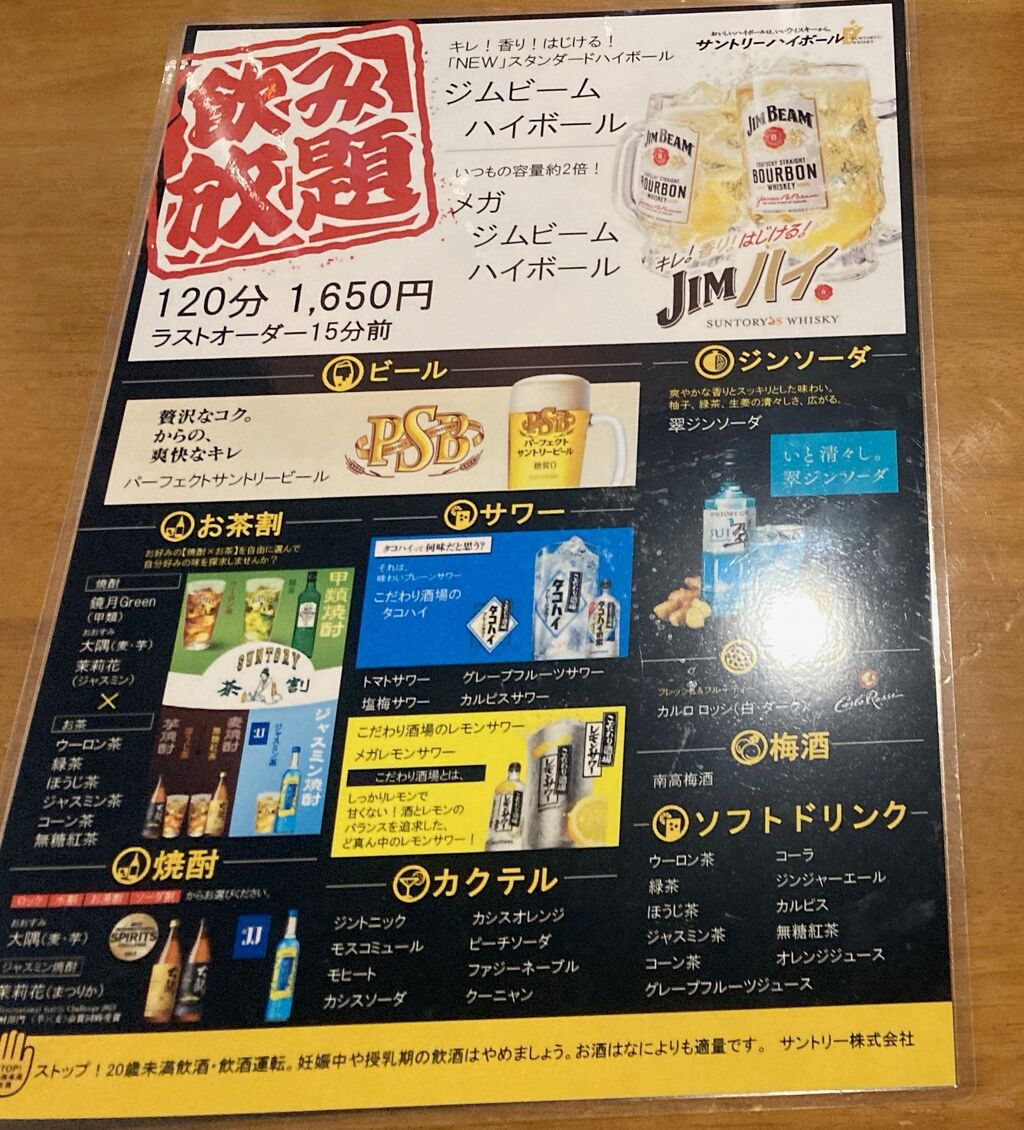 飲み
放題
120分 1,650円
ラストオーダー15分前
キレ！香り！はじける！
「NEW」スタンダードハイボール
ジムビーム
ハイボール
いつもの容量約2倍！
メガ
ジムビーム
ハイボール
おいしいハイボールは、いいウイスキーから。
サントリーハイボール
JIM BEAM
BOURBON
WHISKEY
JIM BEAM
KENTUCKY STRAIGHT
BOURBON
WHISKEY
キレ！香り！はじける！
JIMハイ
SUNTORY'S WHISKY
ビール
贅沢なコク。
からの、
爽快なキレ
パーフェクトサントリービール
PSB
PSB
パーフェクト
サントリービール
糖質0
ジンソーダ
爽やかな香りとスッキリとした味わい。
柚子、緑茶、生姜の清々しさ、広がる。
翠ジンソーダ
いと清々し。
翠ジンソーダ
お茶割
お好みの【焼酎×お茶】を自由に選んで
自分好みの味を探求しませんか？
焼酎
鏡月Green
(甲類)
おおすみ
大隅(麦・芋)
茉莉花
(ジャスミン)
×
お茶
ウーロン茶
緑茶
ほうじ茶
ジャスミン茶
コーン茶
無糖紅茶
甲類焼酎
SUNTORY
茶割
芋焼酎
麦焼酎
ジャスミン焼酎
サワー
タコハイって何味だと思う?
それは、
味わいプレーンサワー
こだわり酒場の
タコハイ
タコハイ
タコハイ
トマトサワー
グレープフルーツサワー
塩梅サワー
カルピスサワー
こだわり酒場のレモンサワー
メガレモンサワー
こだわり酒場とは、
しっかりレモンで
甘くない！酒とレモンの
バランスを追求した、
ど真ん中のレモンサワー！
こだわり酒場の
レモンサワー
カルロ ロッシ(白・ダーク)
Carlo Rossi
梅酒
南高梅酒
焼酎
ロック 水割 お湯割 ソーダ割 からお選びください。
おおすみ
大隅(麦・芋)
SPIRITS
ジャスミン焼酎
茉莉花(まつりか)
カクテル
ジントニック
モスコミュール
モヒート
カシスソーダ
カシスオレンジ
ピーチソーダ
ファジーネーブル
クーニャン
ソフトドリンク
ウーロン茶
緑茶
ほうじ茶
ジャスミン茶
コーン茶
グレープフルーツジュース
コーラ
ジンジャーエール
カルピス
無糖紅茶
オレンジジュース
ストップ！20歳未満飲酒・飲酒運転。妊娠中や授乳期の飲酒はやめましょう。お酒はなによりも適量です。 サントリー株式会社